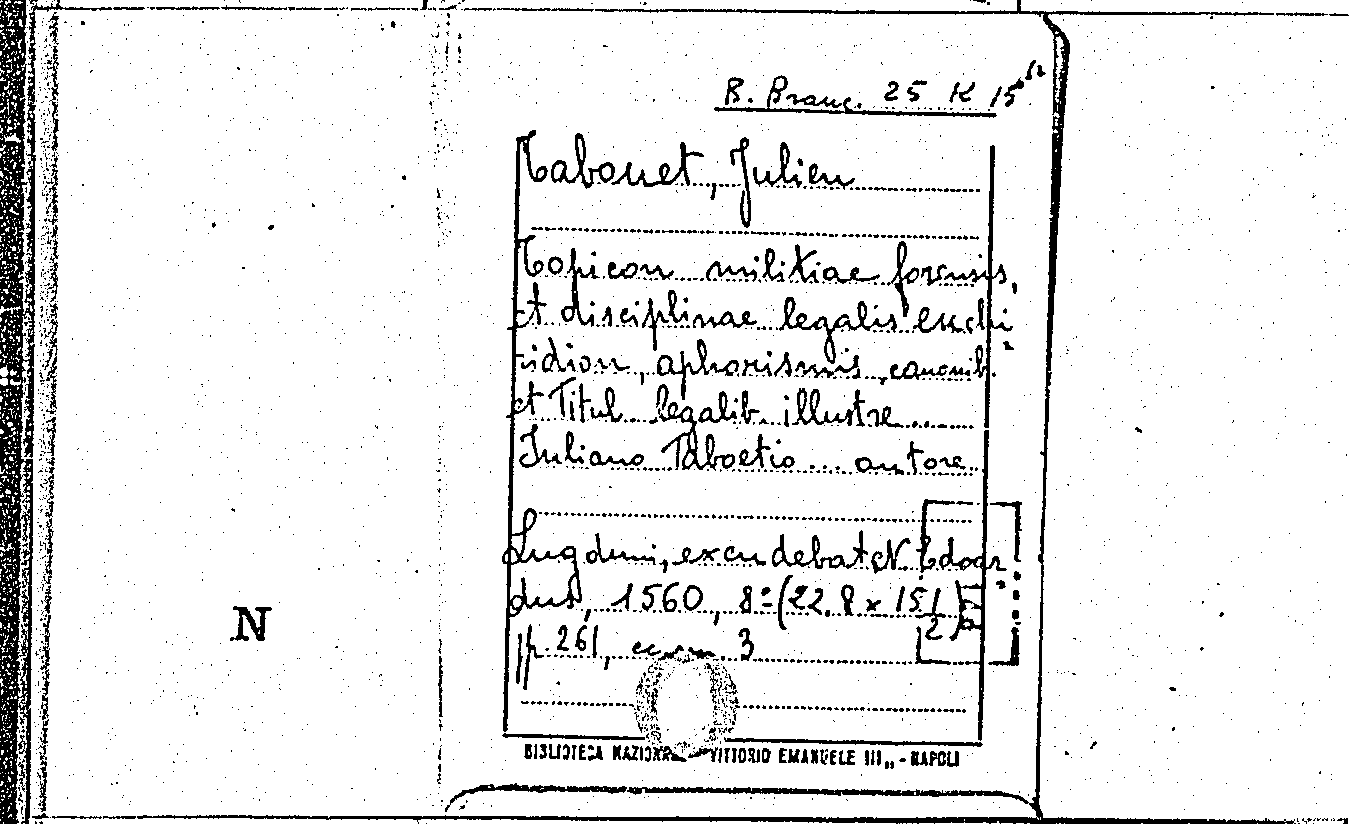 B. Branc. 25 K 15
Tabouet, Julien
Topicon militiae forensis,
et disciplinae legalis enchi
ridion, aphorismis, canonib.
et Titul. legalib. illustre.....
Iuliano Taboetio... autore
Lugduni, excudebat N. Edoar
dus, 1560, 8º (22.8 x 15
2)
pp. 261, 3
N
BIBLIOTECA NAZIONALE VITTORIO EMANUELE III„ - NAPOLI